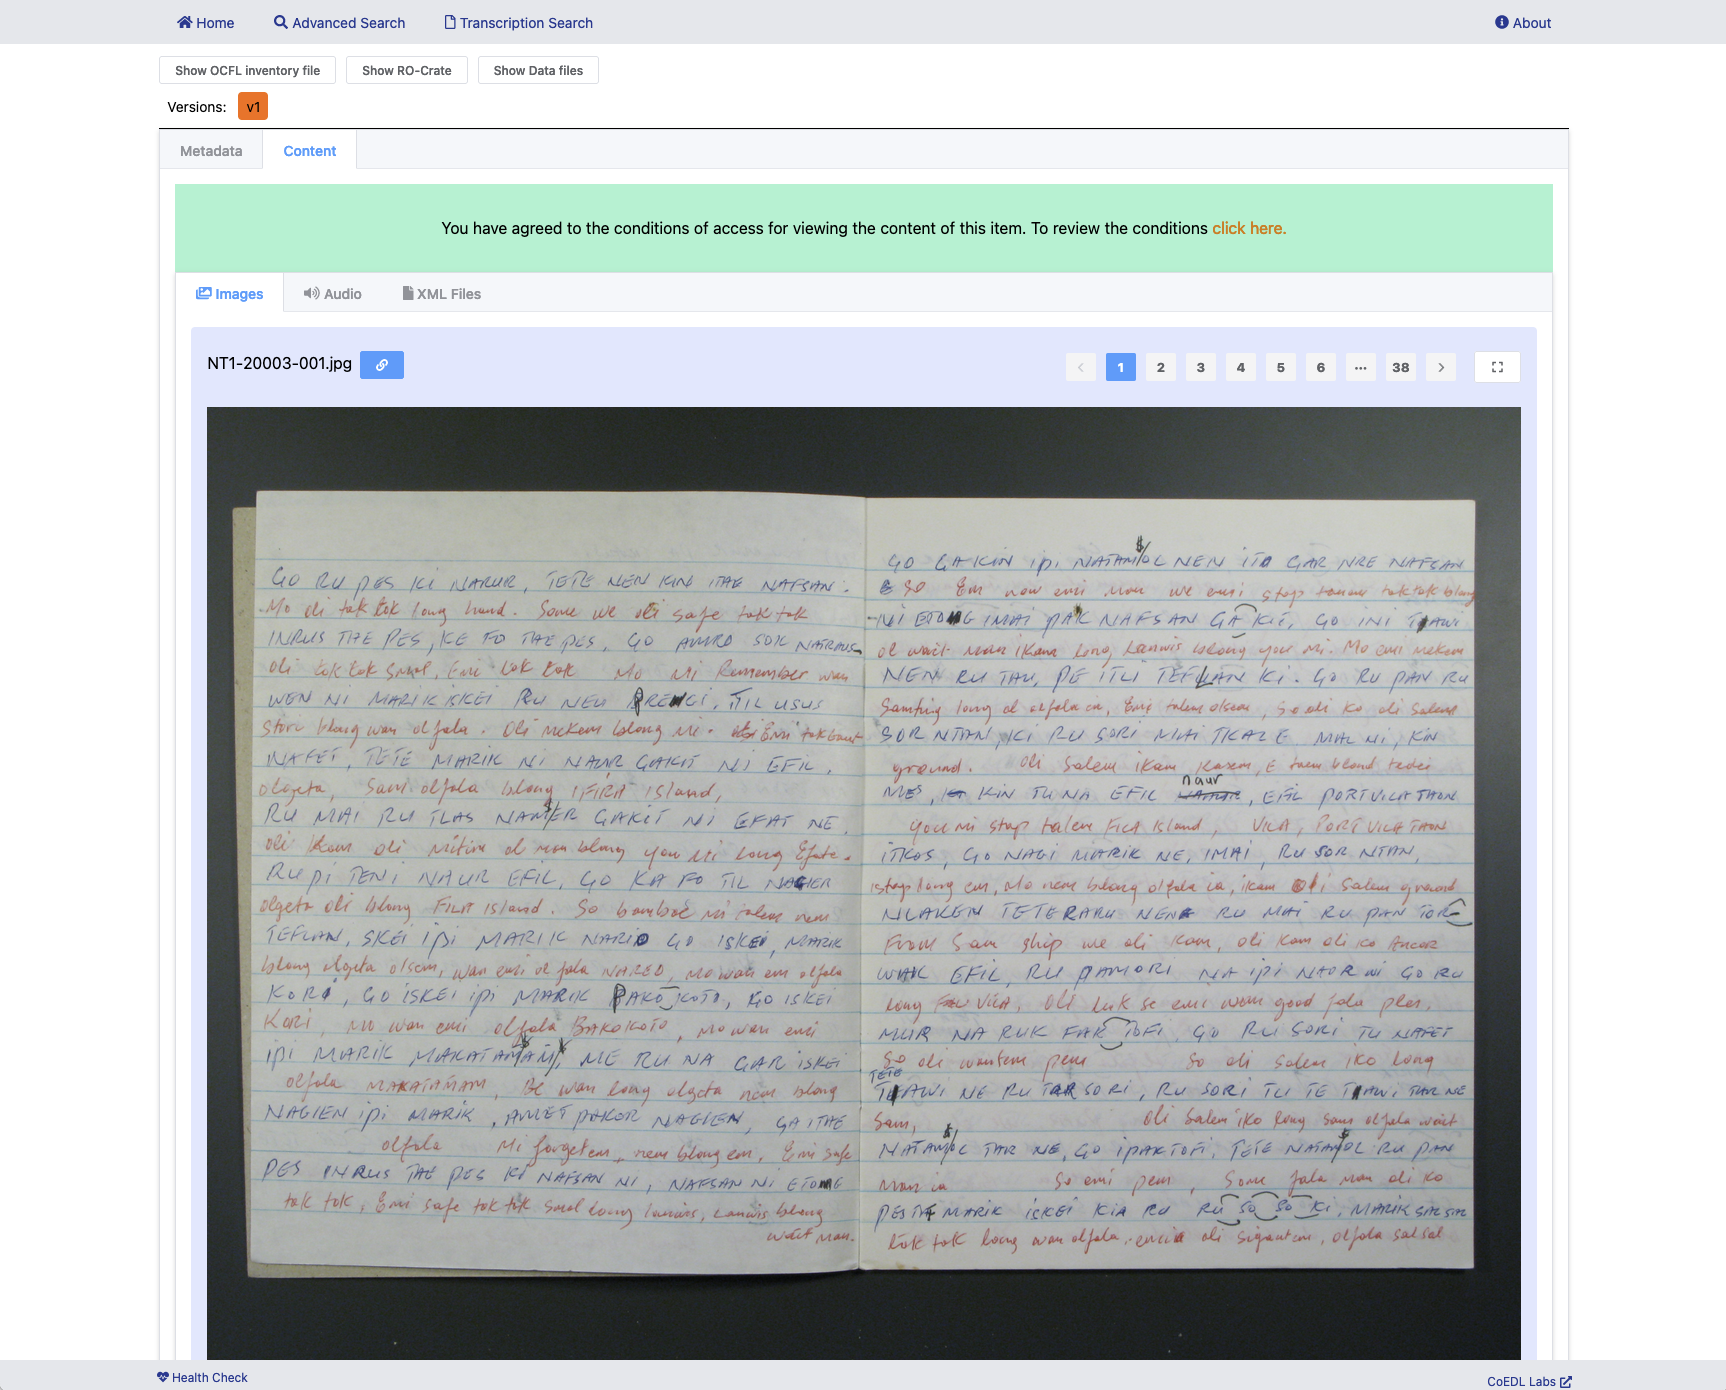 Home
Advanced Search
Transcription Search
About
Show OCFL inventory file
Show RO-Crate
Show Data files
Versions: v1
Metadata
Content
You have agreed to the conditions of access for viewing the content of this item. To review the conditions click here.
Images
Audio
XML Files
NT1-20003-001.jpg
1 2 3 4 5 6 ... 38
GO RU PES KI NARUR, TETE NEN KIN ITAE NAFSAN.
Mo oli tok tok long hand. Some we oli safe tok tok
INRUS TAE PES, KE FO TAE PES, GO AMURO SOK NATRAUS
oli tok tok smol, Emi tok tok Mo Mi Remember wan
WEN NI MARIK ISKEI RU NEU PRENGI, TIL USUS
Stori blong wan olfala. Oli mekem blong Mi. Emi tokbaut
NAFET, TETE MARIK NI NAUR GAKIT NI EFIL,
olgeta, Sam olfala blong IFIRA island,
RU MAI RU TLAS NAMER GAKIT NI EFAT NE.
oli Kam oli mitim ol man blong you mi long Efate.
RUPI TENI NAUR EFIL, GO KA FO TIL NAGIER
olgeta oli blong FILA island. So bambae mi talem nem
TEFLAN, SKEI IPI MARIK NARIO GO ISKEI, MARIK
blong olgeta olsem, wan emi olfala NAREO, mo wan em olfala
KORI, GO ISKEI IPI MARIK PAKO KOTO, GO ISKEI
KORI, mo wan emi olfala BAKOKOTO, mo wan emi
IPI MARIK MAKATAMAM, ME RU NA GAR ISKEI
olfala MAKATAMAM, Be wan long olgeta nem blong
NAGIEN IPI MARIK, AMET PAKOR NAGIEN, GA ITAE
olfala Mi forgetem, nem blong em, Emi safe
PES INRUS TAE PES KI NAFSAN NI, NAFSAN NI ETONG
tok tok, Emi safe tok tok smol long lanwis, Lanwis blong
wait man.
GO GAKIN IPI NATAMOL NEN ITO GAR NRE NAFSAN
So Em now emi man we emi stap tanem toktok blong
NI ETONG IMAI PAK NAFSAN GAKIT, GO INI TAAWI
ol wait man ikam long Lanwis blong you mi. Mo emi mekem
NEN RU TAU, PE ITLI TEFLAN KI. GO RU PAN RU
Samting long ol olfala ia, Emi talem olsem, so oli ko oli salem
SOR NTAN, KI RU SORI MAI TKAL E MAL NI, KIN
ground. Oli Salem ikam kasem, E taem blond tedei
naur
MES, KIN TU NA EFIL, EFIL PORT VILA TAON
you mi stap talem FILA island, VILA, PORT VILA TAON
ITKOS, GO NAGI MARIK NE, IMAI, RU SOR NTAN,
istap long em, Mo nem blong olfala ia, ikam oli Salem ground
NLAKEN TETE RARU NEN RU MAI RU PAN TORE
From Sam ship we oli Kam, oli Kam oli ko Ancor
WAK EFIL, RU PAMORI NA IPI NAOR WI GO RU
long VILA, oli luk se emi wan good fala ples,
MUR NA RUK FAK TOFI GO RU SORI TU NAFET
So oli wantem pem So oli salem iko long
TETE
TAAWI NE RU TAR SORI, RU SORI TU TE TAAWI TAR NE
Sam, Oli Salem iko long Sam olfala wait
NATAMOL TAR NE, GO IPAKTOFI, TETE NATAMOL RU PAN
Man ia So emi pem, Some fala man oli ko
PES TAE MARIK ISKEI KIA RU RU SO SO KI, MARIK SALSAL
tok tok long wan olfala, emia oli singaotem, olfala salsal
Health Check
CoEDL Labs